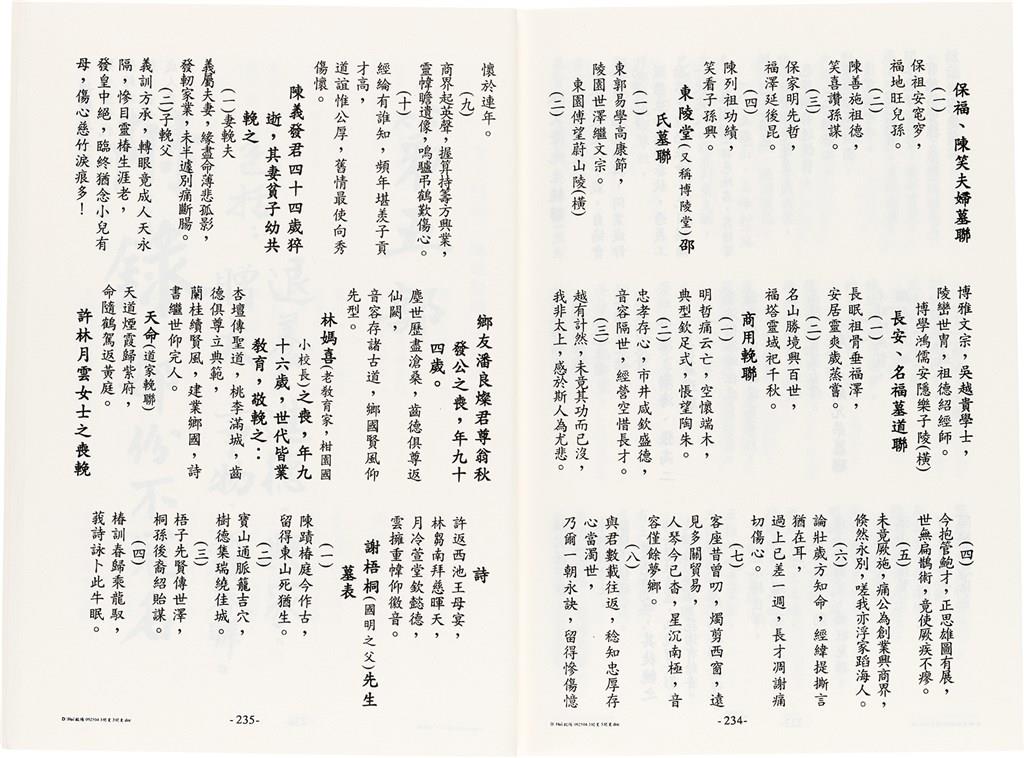 保福、陳笑夫婦墓聯
(一)
保祖安窀穸,
福地旺兒孫。
(二)
陳善施祖德,
笑喜讚孫謀。
(三)
保家明先哲,
福澤延後昆。
(四)
陳列祖功績,
笑看子孫興。
東陵堂(又稱博陵堂)邵
氏墓聯
(一)
東郭易學高康節,
陵園世澤繼文宗。
東園傳望蔚山陵(橫)
(二)
博雅文宗,吳越貴學士,
陵巒世冑,祖德紹經師。
博學鴻儒安隱樂子陵(橫)
長安、名福墓道聯
(一)
長眠祖骨垂福澤,
安居靈爽歲蒸嘗。
(二)
名山勝境興百世,
福塔靈域祀千秋。
商用輓聯
(一)
明哲痛云亡,空懷端木,
典型欽足式,悵望陶朱。
(二)
忠孝存心,市井咸欽盛德,
音容隔世,經營空惜長才。
(三)
越有計然,未竟其功而已沒,
我非太上,感於斯人為尤悲。
(四)
今抱管鮑才,正思雄圖有展,
世無扁鵲術,竟使厥疾不瘳。
(五)
未竟厥施,痛公為創業興商界,
倏然永別,嗟我亦浮家蹈海人。
(六)
論壯歲方知命,經緯提撕言
猶在耳,
過上已差一週,長才凋謝痛
切傷心。
(七)
客座昔曾叨,燭剪西窗,遠
見多關貿易,
人琴今已杳,星沉南極,音
容僅餘夢鄉。
(八)
與君數載往返,稔知忠厚存
心當濁世,
乃爾一朝永訣,留得慘傷憶
-234-
懷於連年。
(九)
商界起英聲,握算持籌方興業,
靈幃瞻遺像,鳴驢吊鶴歎傷心。
(十)
經綸有誰知,頻年堪羨子貢
才高,
道誼惟公厚,舊情最使向秀
傷懷。
陳義發君四十四歲猝
逝,其妻貧子幼共
輓之
(一)妻輓夫
義屬夫妻,緣盡命薄悲孤影,
發軔家業,未半遽別痛斷腸。
(二)子輓父
義訓方承,轉眼竟成人天永
隔,慘目靈椿生涯老,
發皇中絕,臨終猶念小兒有
母,傷心慈竹淚痕多!
鄉友潘良燦君尊翁秋
發公之喪,年九十
四歲。
塵世歷盡滄桑,齒德俱尊返
仙闕,
音容存諸古道,鄉國賢風仰
先型。
林媽喜(老教育家,柑園國
小校長)之喪,年九
十六歲,世代皆業
教育,敬輓之:
杏壇傳聖道,桃李滿城,齒
德俱尊立典範,
蘭桂績賢風,建業鄉國,詩
書繼世仰完人。
天命(道家輓聯)
天道煙霞歸紫府,
命隨鶴駕返黃庭。
許林月雲女士之喪輓
詩
許返西池王母宴,
林芻南拜慈暉天,
月冷萱堂欽懿德,
雲擁重幃仰徽音。
謝梧桐(國明之父)先生
墓表
(一)
陳蹟椿庭今作古,
留得東山死猶生。
(二)
寶山通脈龍吉穴,
樹德集瑞繞佳城。
(三)
梧子先賢傳世澤,
桐孫後裔紹貽謀。
(四)
椿訓春歸乘龍馭,
莪詩詠卜此牛眠。
-235-